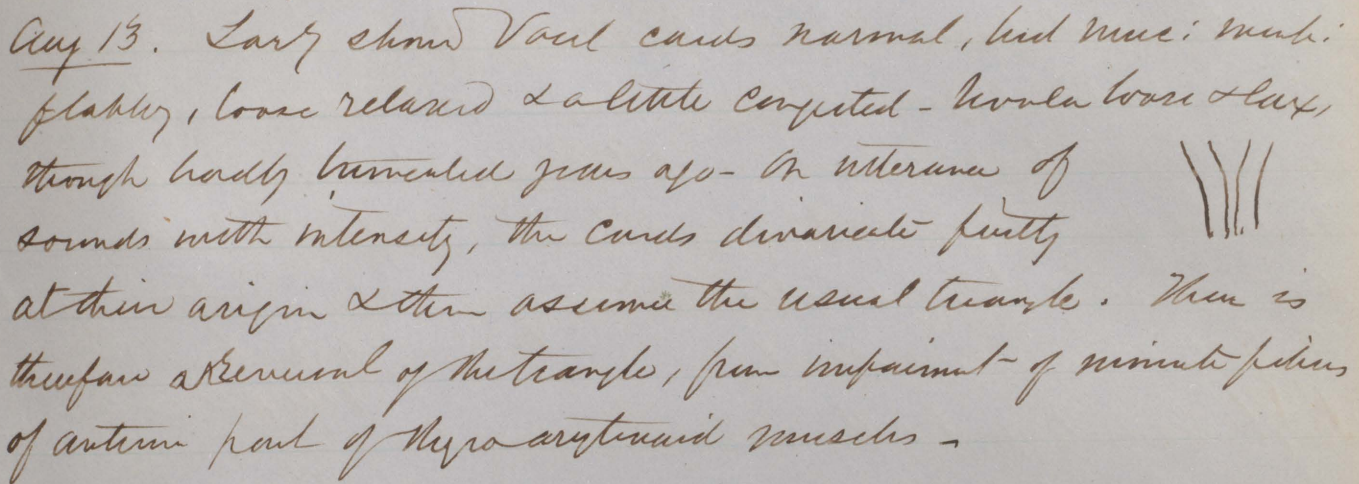 Aug 13. Lary shows Vocal cords normal, but muc: memb:
flabby, loose relaxed & a little congested - Uvula loose & lax,
though badly truncated years ago - On utterance of
sounds with intensity, the cords divaricate firstly
at their origin & then assume the usual triangle. There is
therefore a Reversal of the triangle, from impairment of minute fibres
of anterior part of thyro arytenoid muscles -